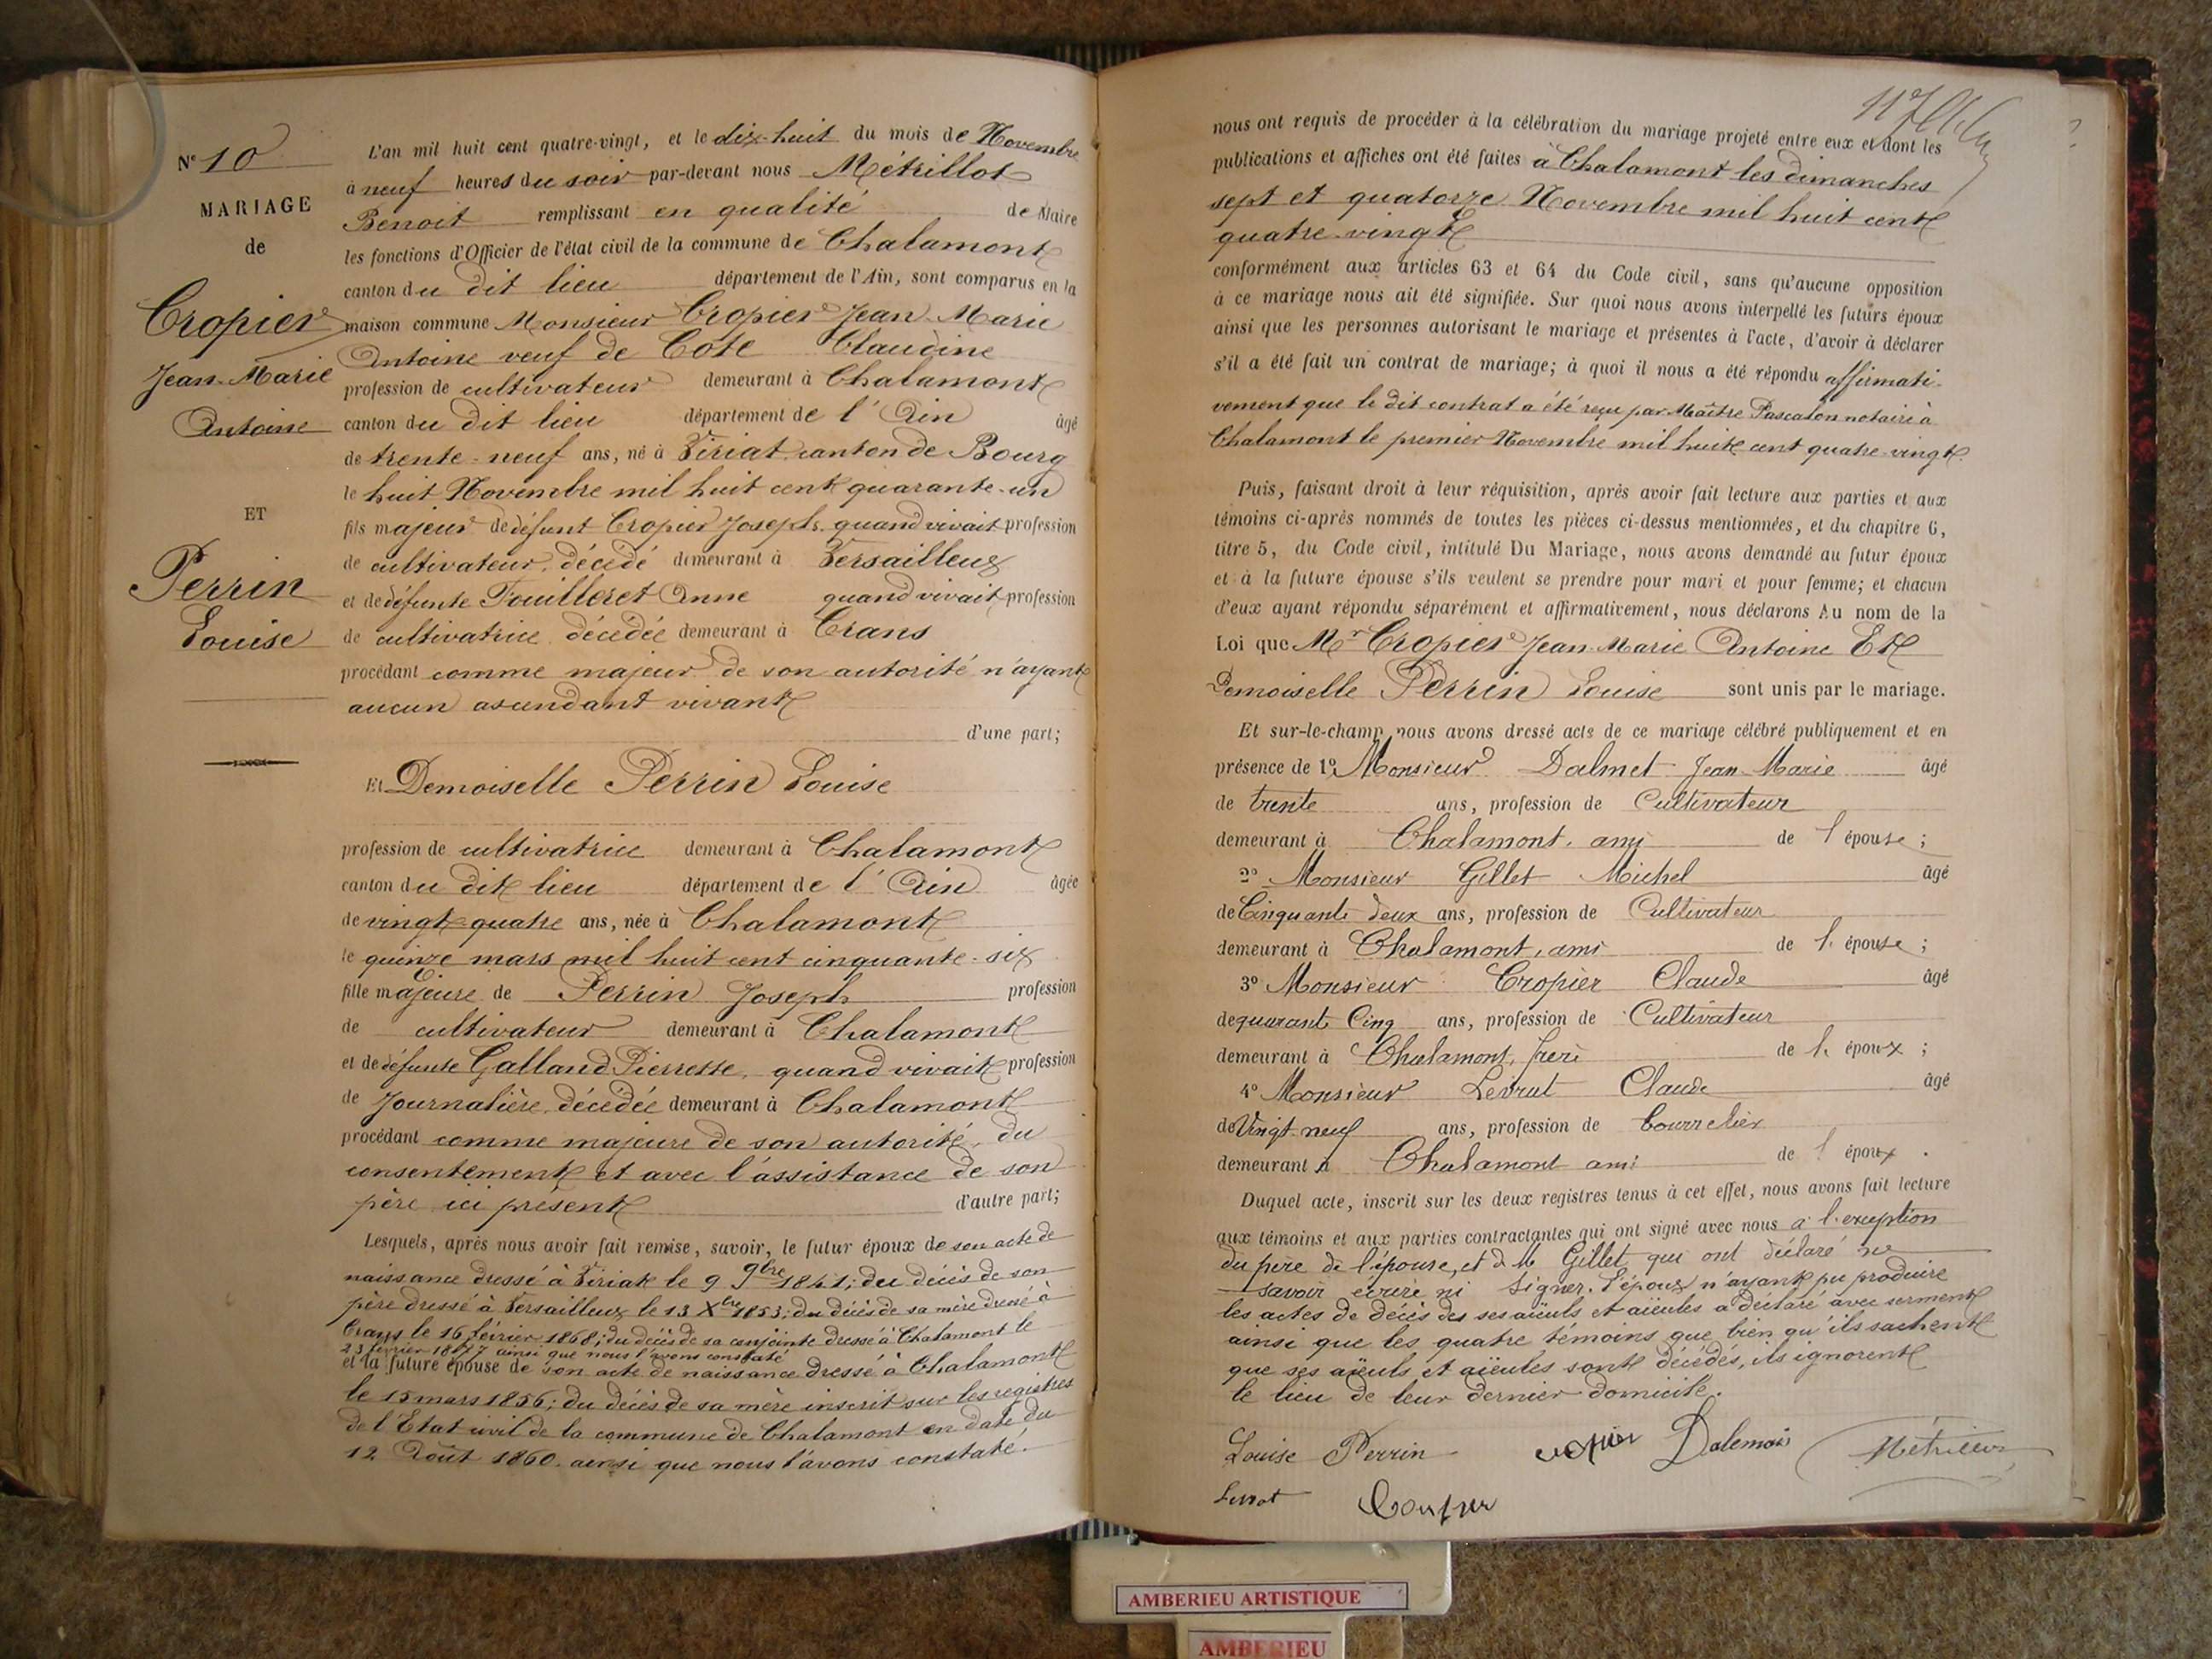 N° 10
MARIAGE
de
Cropier
Jean-Marie
Antoine
ET
Perrin
Louise
L'an mil huit cent quatre-vingt, et le dix-huit du mois de Novembre
à neuf heures du soir par-devant nous Métrillot
Benoit remplissant en qualité de Maire
les fonctions d'Officier de l'état civil de la commune de Chalamont
canton du dit lieu département de l'Ain, sont comparus en la
maison commune Monsieur Cropier Jean Marie
Antoine veuf de Cote Claudine
profession de cultivateur demeurant à Chalamont
canton du dit lieu département de l'Ain âgé
de trente-neuf ans, né à Viriat canton de Bourg
le huit Novembre mil huit cent quarante-un
fils majeur de défunt Cropier Joseph, quand vivait profession
de cultivateur, décédé demeurant à Versailleux
et de défunte Fouilleret Anne quand vivait profession
de cultivatrice décédée demeurant à Crans
procédant comme majeur de son autorité n'ayant
aucun ascendant vivant
d'une part;
Et Demoiselle Perrin Louise
profession de cultivatrice demeurant à Chalamont
canton du dit lieu département de l'Ain âgée
de vingt-quatre ans, née à Chalamont
le quinze mars mil huit cent cinquante-six
fille majeure de Perrin Joseph profession
de cultivateur demeurant à Chalamont
et de défunte Galland Pierrette, quand vivait profession
de Journalière, décédée demeurant à Chalamont
procédant comme majeure de son autorité, du
consentement et avec l'assistance de son
père ici présent d'autre part;
Lesquels, après nous avoir fait remise, savoir, le futur époux de son acte de
naissance dressé à Viriat le 9 9bre 1841; du décès de son
père dressé à Versailleux le 13 Xbre 1853; du décès de sa mère dressé à
Crans le 16 février 1868; du décès de sa conjointe dressé à Chalamont le
23 février 1877 ainsi que nous l'avons constaté
et la future épouse de son acte de naissance dressé à Chalamont
le 15 mars 1856; du décès de sa mère inscrit sur les registres
de l'Etat civil de la commune de Chalamont en date du
12 Août 1860. ainsi que nous l'avons constaté.
nous ont requis de procéder à la célébration du mariage projeté entre eux et dont les
publications et affiches ont été faites à Chalamont les dimanches
sept et quatorze Novembre mil huit cent
quatre-vingt
conformément aux articles 63 et 64 du Code civil, sans qu'aucune opposition
à ce mariage nous ait été signifiée. Sur quoi nous avons interpellé les futurs époux
ainsi que les personnes autorisant le mariage et présentes à l'acte, d'avoir à déclarer
s'il a été fait un contrat de mariage; à quoi il nous a été répondu affirmati-
vement que le dit contrat a été reçu par Maître Pascalon notaire à
Chalamont le premier Novembre mil huit cent quatre-vingt.
Puis, faisant droit à leur réquisition, après avoir fait lecture aux parties et aux
témoins ci-après nommés de toutes les pièces ci-dessus mentionnées, et du chapitre 6,
titre 5, du Code civil, intitulé Du Mariage, nous avons demandé au futur époux
et à la future épouse s'ils veulent se prendre pour mari et pour femme; et chacun
d'eux ayant répondu séparément et affirmativement, nous déclarons Au nom de la
Loi que Mr Cropier Jean-Marie Antoine Et
Demoiselle Perrin Louise sont unis par le mariage.
Et sur-le-champ nous avons dressé acte de ce mariage célébré publiquement et en
présence de 1° Monsieur Dalmet Jean-Marie âgé
de trente ans, profession de Cultivateur
demeurant à Chalamont, ami de l'épouse;
2° Monsieur Gillet Michel âgé
de Cinquante deux ans, profession de Cultivateur
demeurant à Chalamont, ami de l'épouse;
3° Monsieur Cropier Claude âgé
de quarante Cinq ans, profession de Cultivateur
demeurant à Chalamont, frère de l'époux;
4° Monsieur Levrat Claude âgé
de Vingt-neuf ans, profession de bourrelier
demeurant à Chalamont ami de l'époux.
Duquel acte, inscrit sur les deux registres tenus à cet effet, nous avons fait lecture
aux témoins et aux parties contractantes qui ont signé avec nous à l'exception
du père de l'épouse, et de M Gillet qui ont déclaré ne
savoir écrire ni signer. L'époux n'ayant pu produire
les actes de décès des ses aïeuls et aïeules a déclaré avec serment
ainsi que les quatre témoins que bien qu'ils sachent
que ses aïeuls et aïeules sont décédés, ils ignorent
le lieu de leur dernier domicile.
Louise Perrin Dalemais
AMBERIEU ARTISTIQUE
AMBERIEU